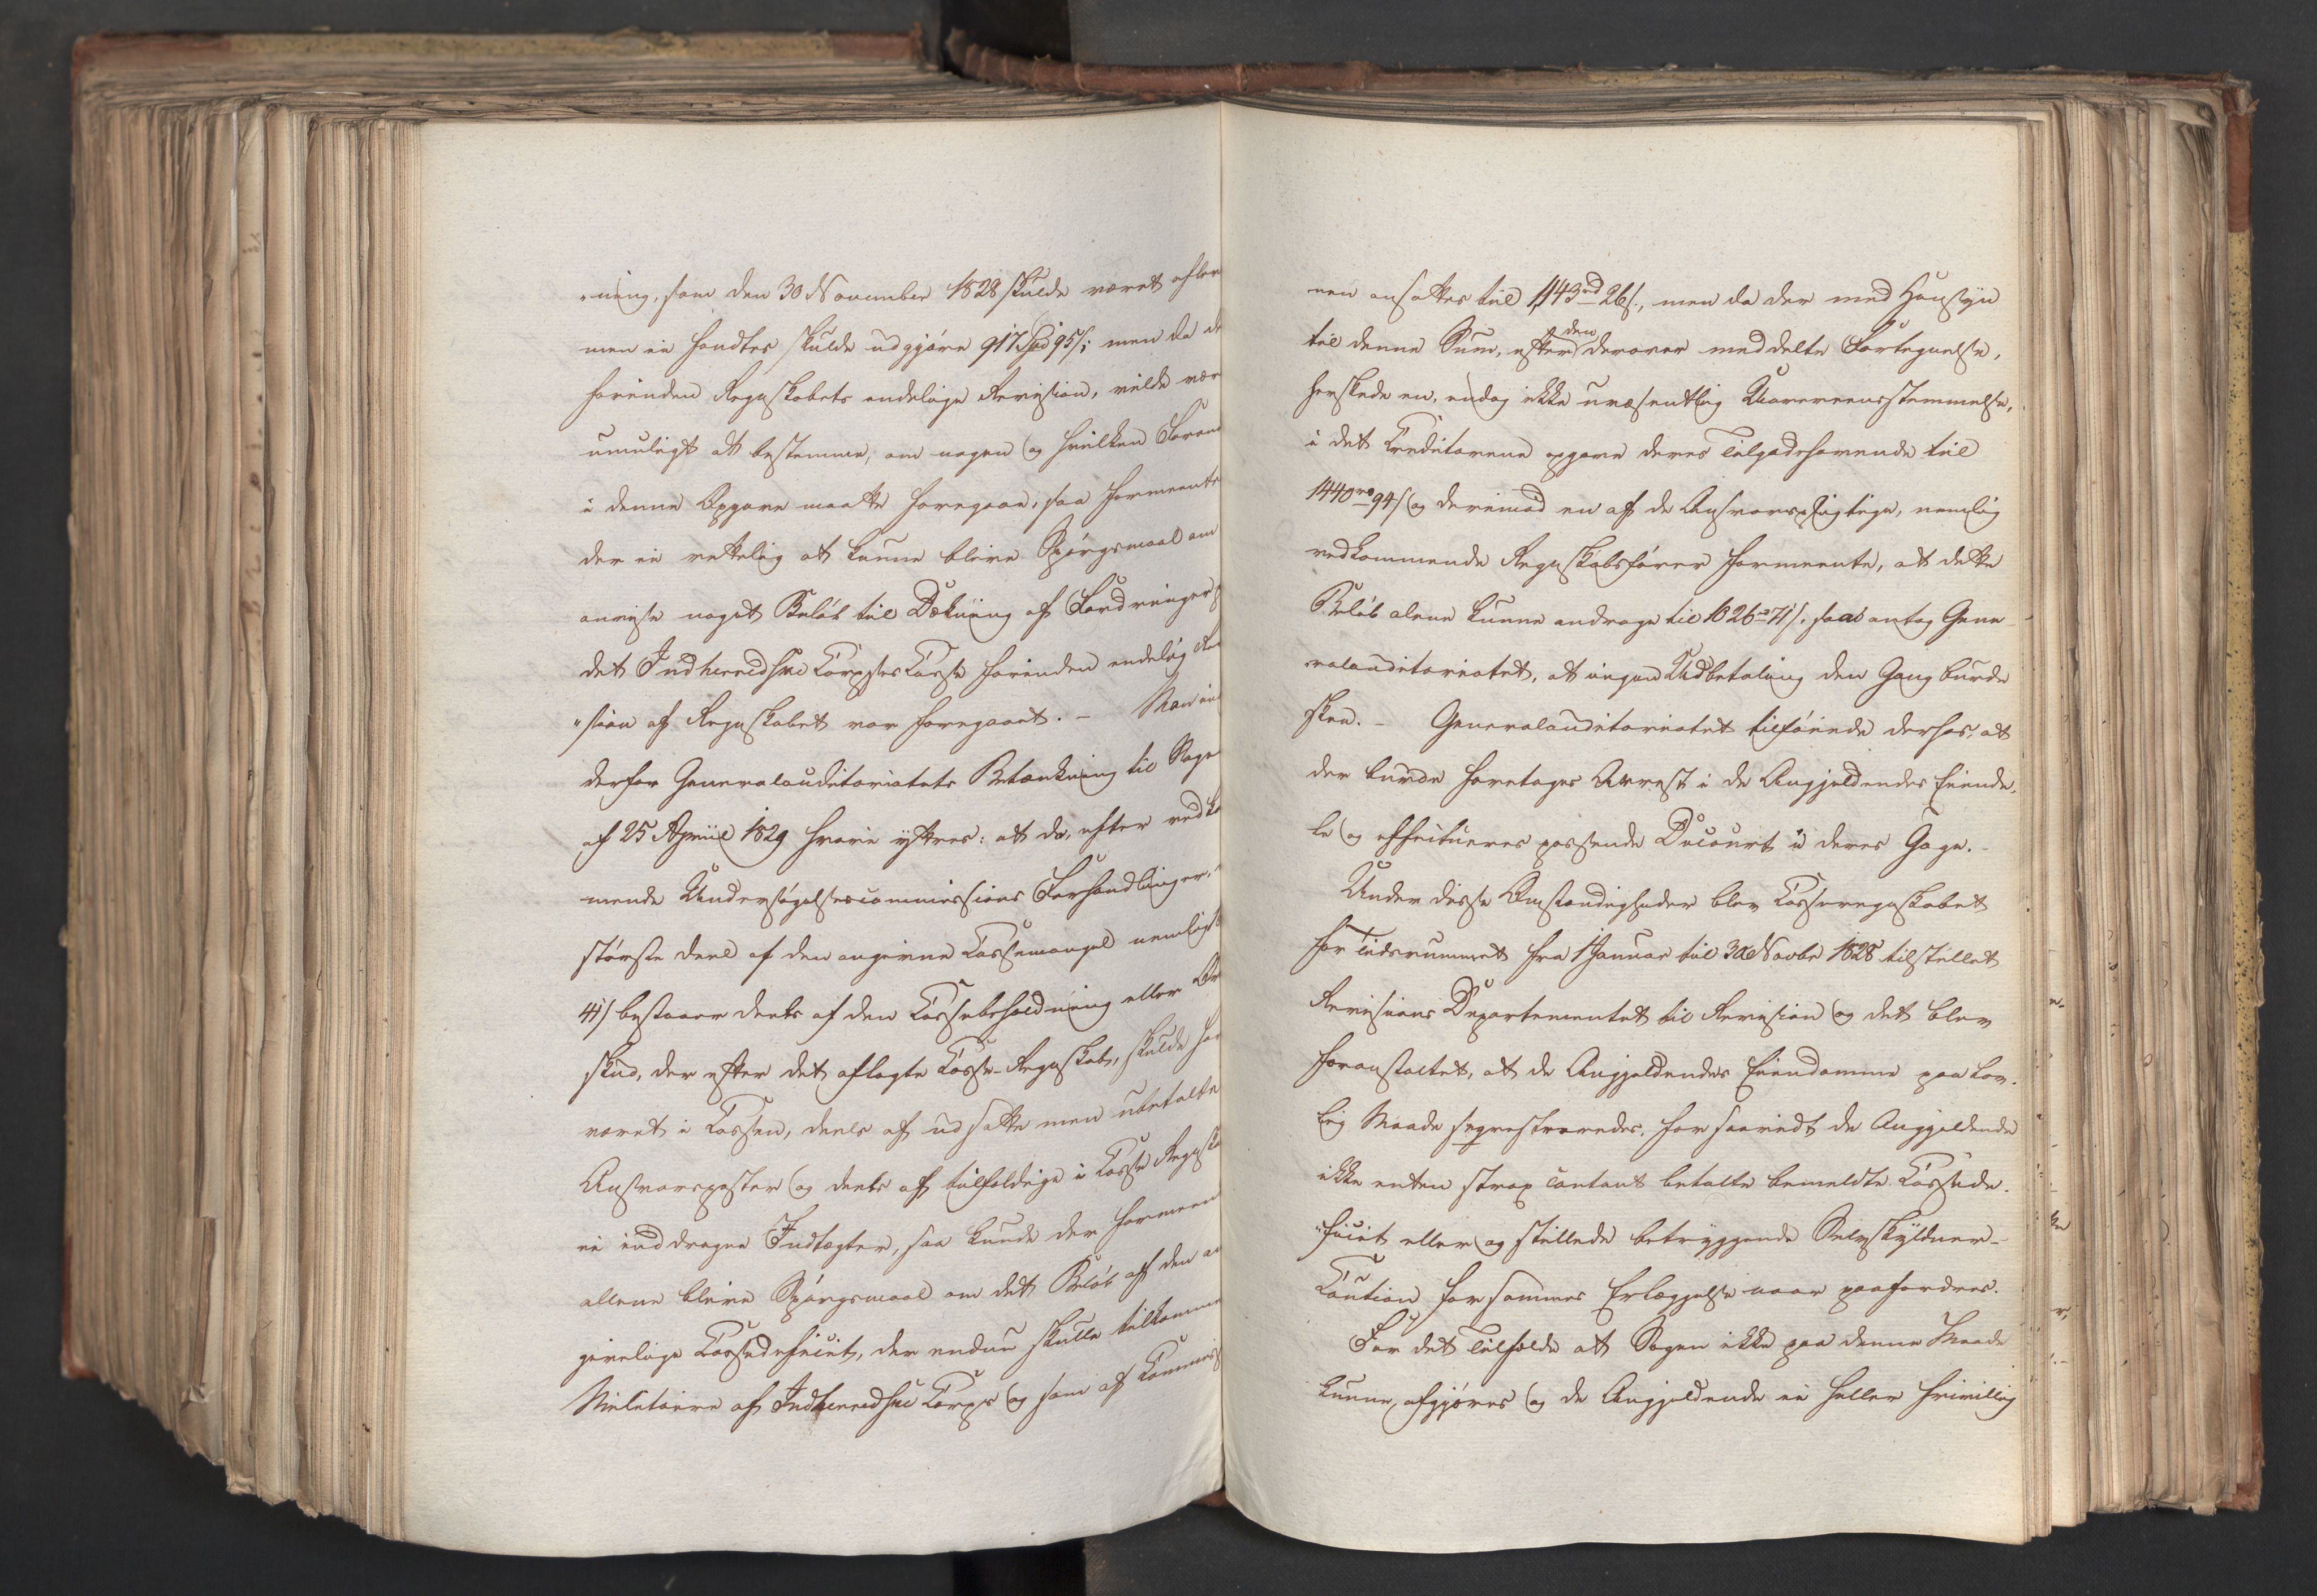 "ning, som den 30 November 1828 skulde været efter
men ei fandtes skulde udgjøre 917 Spd 95 s; men da de
forinden Regnskabets endelige Revision, vilde vær
umuligt at bestemme, om nogen og hvilken Foran
i denne Opgave maatte foregaae, saa formeente
der ei rettelig at kunne blive Spørgsmaal om
anvise noget Beløb til Dækning af Fordringer
det Indherredske Corpses Casse forinden endelig Re
"sion af Regnskabet var foregaaet. -
derfor Generalauditoriatets Betænkning til Sage
af 25 April 1829 hvori yttres: at da, efter vedko
mende Undersøgelsescommissions Forhandlinger,
største Deel af den angivne Cassemangel nemlig
41 s bestaaer deels af den Cassebeholdning eller Ov
skud, der efter det aflagte Casse-Regnskab, skulde ha
været i Cassen, deels af udsatte men ubetalte
Ansvarsposter og deels af tilfældige i Casse Regnska
ei inddragne Indtægter, saa kunde der formeen
allene blive Spørgsmaal om det Beløb af den an
givelige Cassedeficit, der endnu skulle tilkomme
Militaire af Indherredske Corps og som af Commis
nen ansattes til 1143 rd 26 s., men da der med Hensyn
til denne Sum, efter den derover meddelte Fortegnelse,
herskede en, endog ikke uvæsentlig Uovereensstemmelse,
i det Creditorene opgave deres Tilgodehavende til
1440 rd 94 s og derimod en af de Ansvarspligtige, nemlig
vedkommende Regnskabsfører formeente, at dette
Beløb alene kunne andrage til 1026 rd 71 s. saa antog Gene
ralauditoriatet, at ingen Udbetaling den Gang burde
skee. - Generalauditoriatet tilføiede derhos, at
der burde foretages Arrest i de Angjeldendes Eiende,
le og effectueres passende Decourt i deres Gage. -
Under disse Omstændigheder blev Casseregnskabet
for Tidsrummet fra 1 Januar til 30 Novbr 1828 tilstillet
Revisions Departementet til Revision og det blev
foranstaltet, at de Angjeldendes Eiendomme paa lov-
lig Maade seqvestreredes, for saavidt de Angjeldende
ikke enten strax contant betalte bemeldte Cassede-
"ficit eller og stillede betryggende Selvskyldner-
Caution for sammes Erlæggelse naar paafordres.
For det Tilfælde at Sagen ikke paa denne Maade
kunne afgjøres og de Angjeldende ei heller frivillig